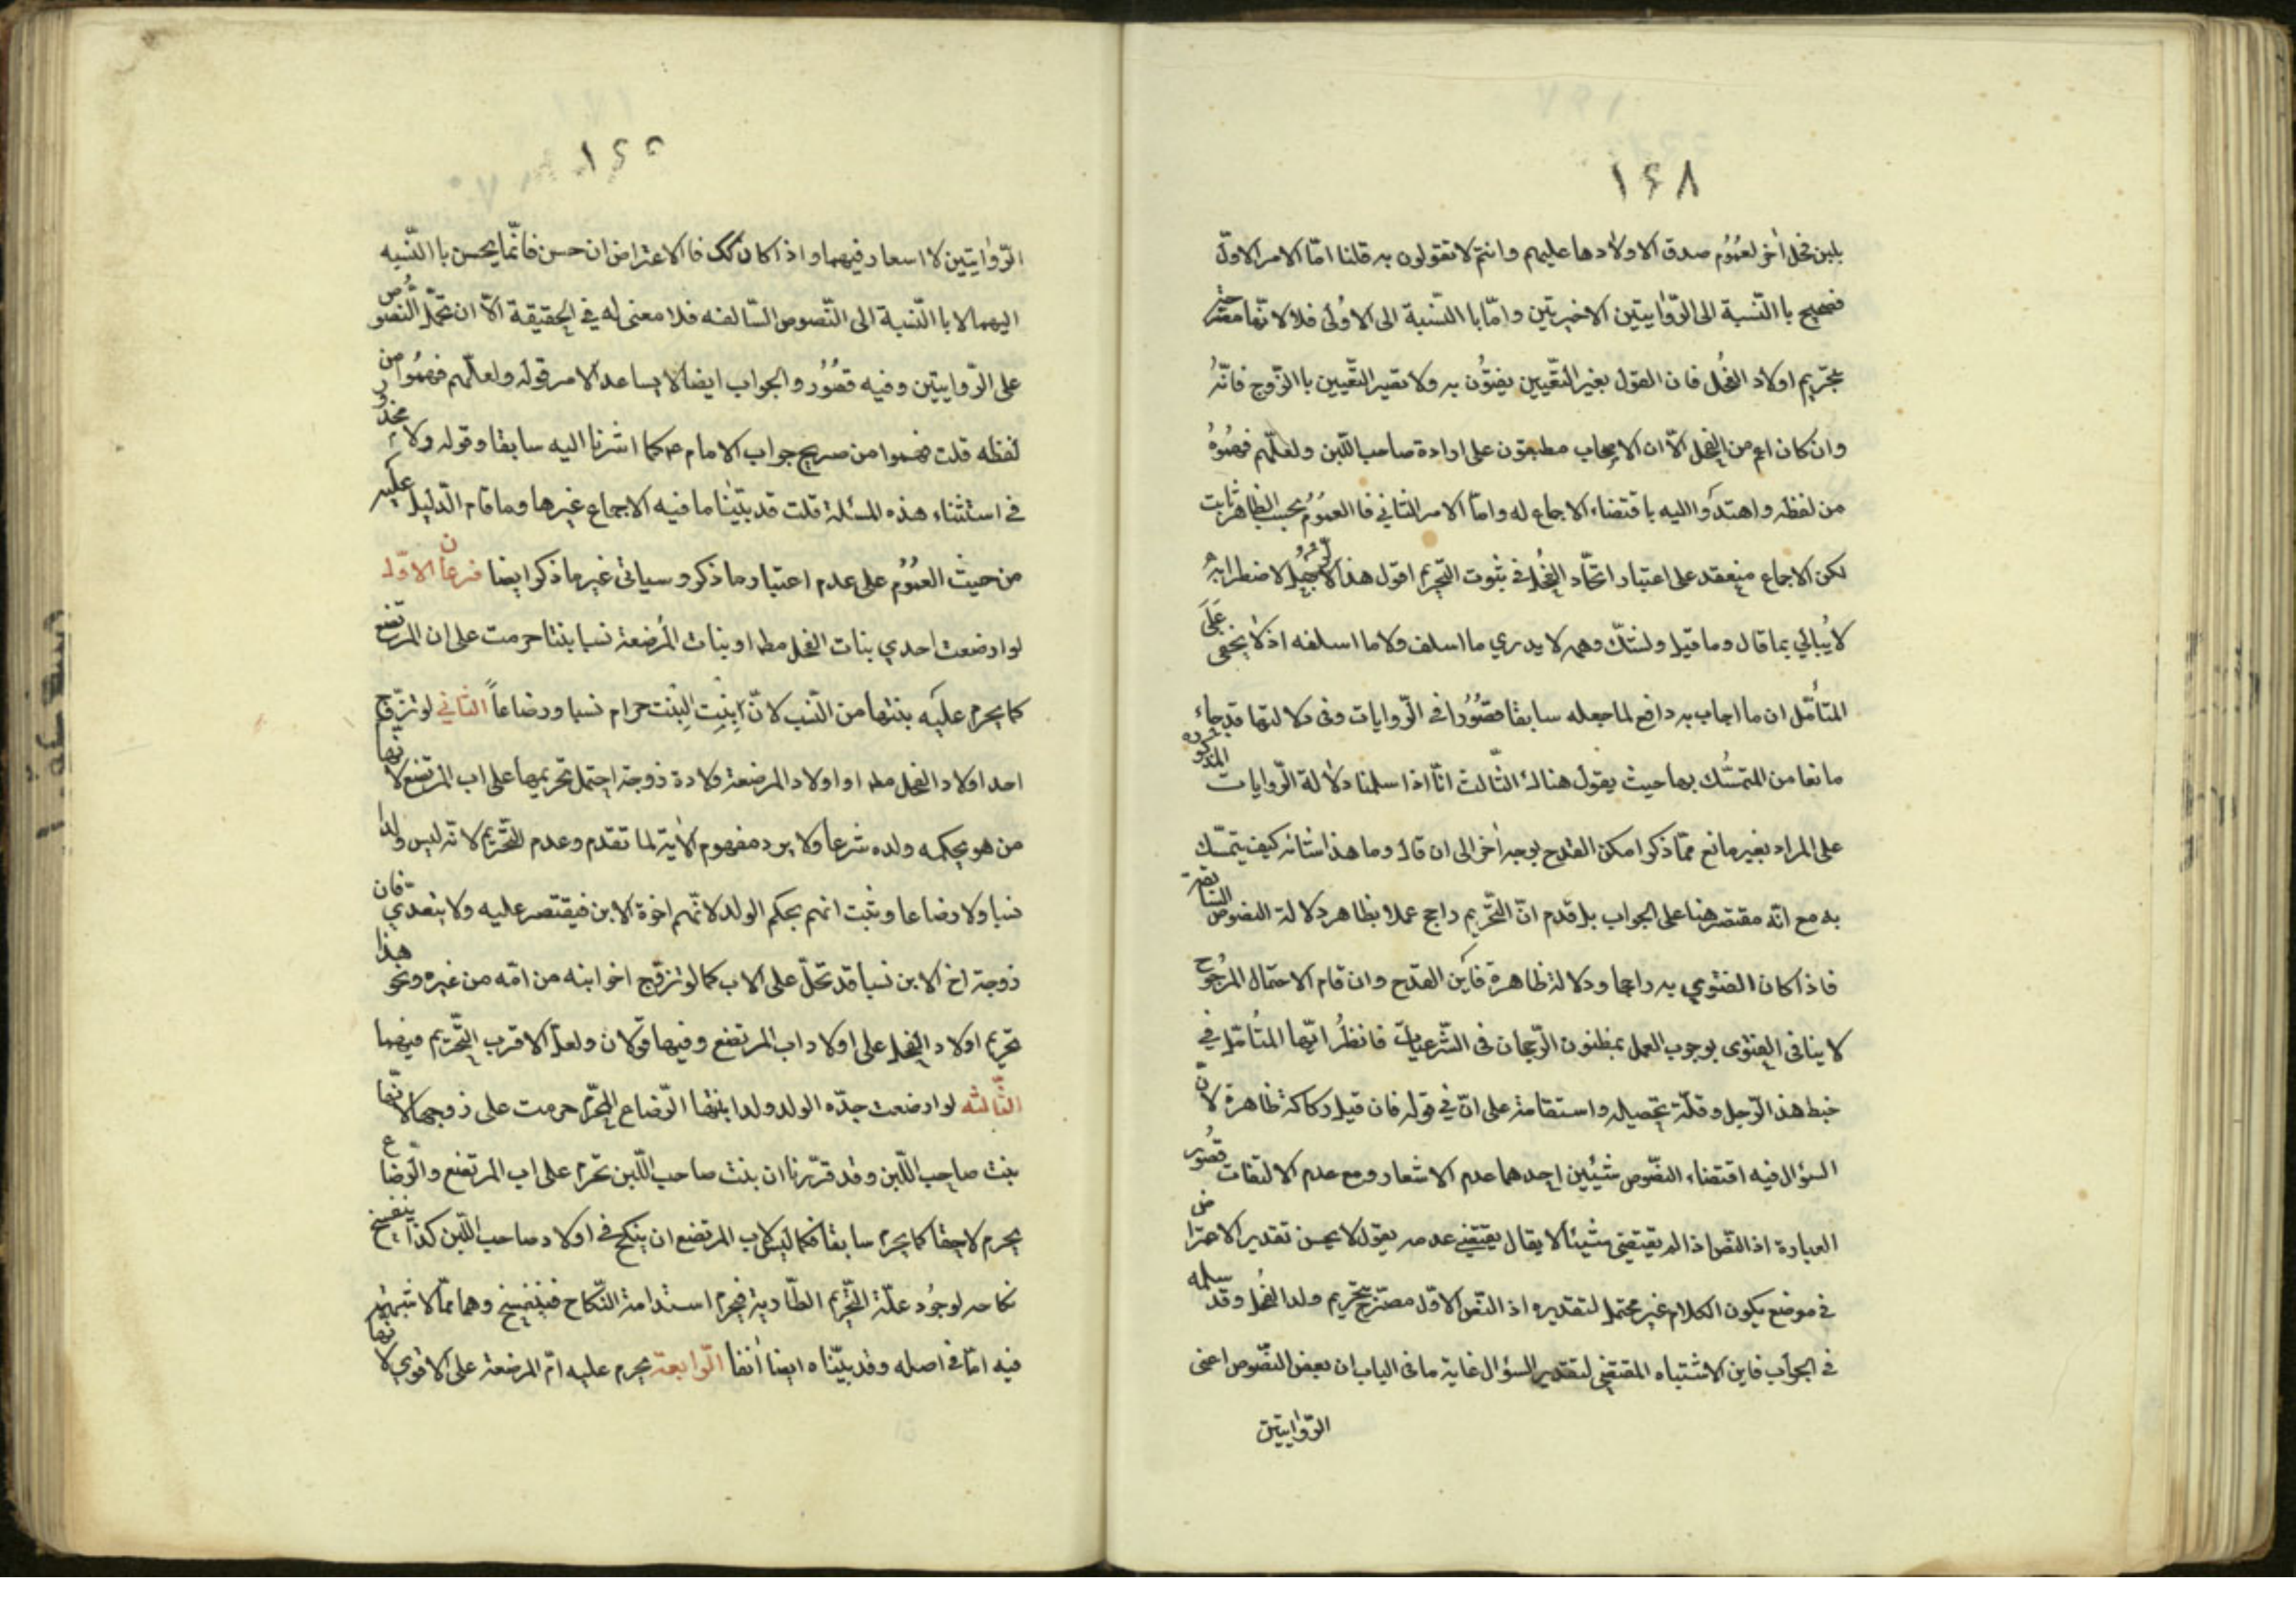 ١٤٨
بلبن فحل أخر لعموم صدق الاولاد ها عليهم وانتم لا تقولون به قلنا امّا الامر الاوّل
فصحيح با النّسبة الى الرّوايتين الاخيرتين وامّا با النّسبة الى الاولى فلا لانّها مصرّحة
بتحريم اولاد الفحل فان القول بغير التقيين يفتون به ولا تغيير التقيين با الزّوج فانّه
وان كان اعم من الفحل الّا ان الاصحاب مطبقون على ارادة صاحب اللّبن ولعلّهم فهموه
من لفظه واهتدوا اليه باقتضاء الاجماع له وامّا الامر الثاني فا العموم بحسب الظاهر ثابت
لكن الاجماع منعقد على اعتبار اتّحاد الفحل في ثبوت التّحريم اقول هذا الرجل لاضطرابه
لا يبالي بما قال وما قيل ولشكّ وهم لا يدري ما اسلف ولا ما اسلفه اذ لا يخفى على
المتأمّل ان ما اجاب به دافع لما جعله سابقا قصورا في الرّوايات وفى دلالتها قد جاء
مانعا من التمسّك بها حيث يقول هناك الثّالث انّا اذا سلمنا دلالة الرّوايات المذكورة
على المراد بغير مانع ممّا ذكر امكن القدح بوجه أخر الى ان قال وما هذا شانه كيف يتمسّك
به مع انّه مقتصر هنا على الجواب بل قدم انّ التّحريم راجح عملا بظاهر دلالة النصوص السّابقة
فاذا كان الفتوى به راجحا ودلالة ظاهرة فأين القدح وان قام الاحتمال المرجوح
لا ينافى الفتوى بوجوب العمل بمظنون الرّجحان فى الشّرعيّات فانظر ايّها المتأمّل في
خبط هذا الرّجل وقلّة تحصيله واستقامته على انّ في قوله فان قيل ركاكة ظاهرة لانّ
السؤال فيه اقتضاء النصّوص شيئين احدهما عدم الاشعار ومع عدم الالتفات قصور
العبارة اذ النّص اذا لم يقتضى شيئا لا يقال يقتضي عدمه يقول لا يحسن تقدير الاعتراض
في موضع يكون الكلام غير محتمل لتقديره اذ النّص الاوّل مصرّح بتحريم ولد الفحل وقد سلمه
في الجواب فاين الاشتباه المقتضي لتقدير السؤال غاية ما فى الباب ان بعض النصّوص اعنى
الرّوايتين
١٤٥
الرّوايتين لا اسعار فيهما واذا كان كك فا الاعتراض ان حسن فانّما يحسن با النّسبه
اليهما لا با النّسبة الى النّصوص السّالفه فلا معنى له في الحقيقة الّا ان تحمل النّصوص
على الرّوايتين وفيه قصور والجواب ايضا لا يساعد الامر قوله ولعلّهم فهموا من
لفظه قلت فهموا من صريح جواب الامام ع كما اشرنا اليه سابقا وقوله ولا محذور
في استثناء هذه المسئلة قلت قد بيّنا ما فيه الاجماع غيرها وما قام الدّليل عليه
من حيث العموم على عدم اعتبار ما ذكر وسياتى غير ما ذكر ايضا فرعان الاوّل
لو ارضعت احدي بنات الفحل مطـ او بنات المرضعة نسبا بنتا حرمت على ان المرتضع
كما يحرم عليه بنتها من النّسب لانّ ابنت البنت حرام نسبا ورضاعاً الثانى لو تزوّج
احد اولاد الفحل مطـ او اولاد المرضعة ولادة زوجة احتمل تحريمها على اب المرتضع لانّها
من هو بحكمه ولده شرعا ولا يرد مفهوم الاية لما تقدم وعدم التّحريم لانّه ليس ولدا
نسبا ولا رضاعا وثبت انهم بحكم الولد لانّهم اخوة الابن فيقتصر عليه ولا يتعدي فان
زوجة اخ الابن نسبا قد تحلّ على الاب كما لو تزوّج اخو ابنه من امّه من غيره ونحو هذا
تحريم اولاد الفحل على اولاد اب المرتضع وفيها قولان ولعلّ الاقرب التّحريم فيهما
الثّالثه لو ارضعت جدّه الولد ولد ابنتها الرّضاع المحرّم حرمت على زوجها لانّها
بنت صاحب اللّبن وقد قرّرنا ان بنت صاحب اللّبن تحرم على اب المرتضع والرّضاع
يحرم لاحقا كما يحرم سابقا فكما ليس لاب المرتضع ان ينكح في اولاد صاحب اللّبن كذا ينفسخ
نكاحه لوجود علّة التّحريم الطّارية فيحرم استدامة النّكاح فينفسخ وهما ممّا لا شبهة
فيه امّا في اصله وقد بيّناه ايضا أنفا الرّابعة يحرم عليه امّ المرضعة على الاقوي لانّها